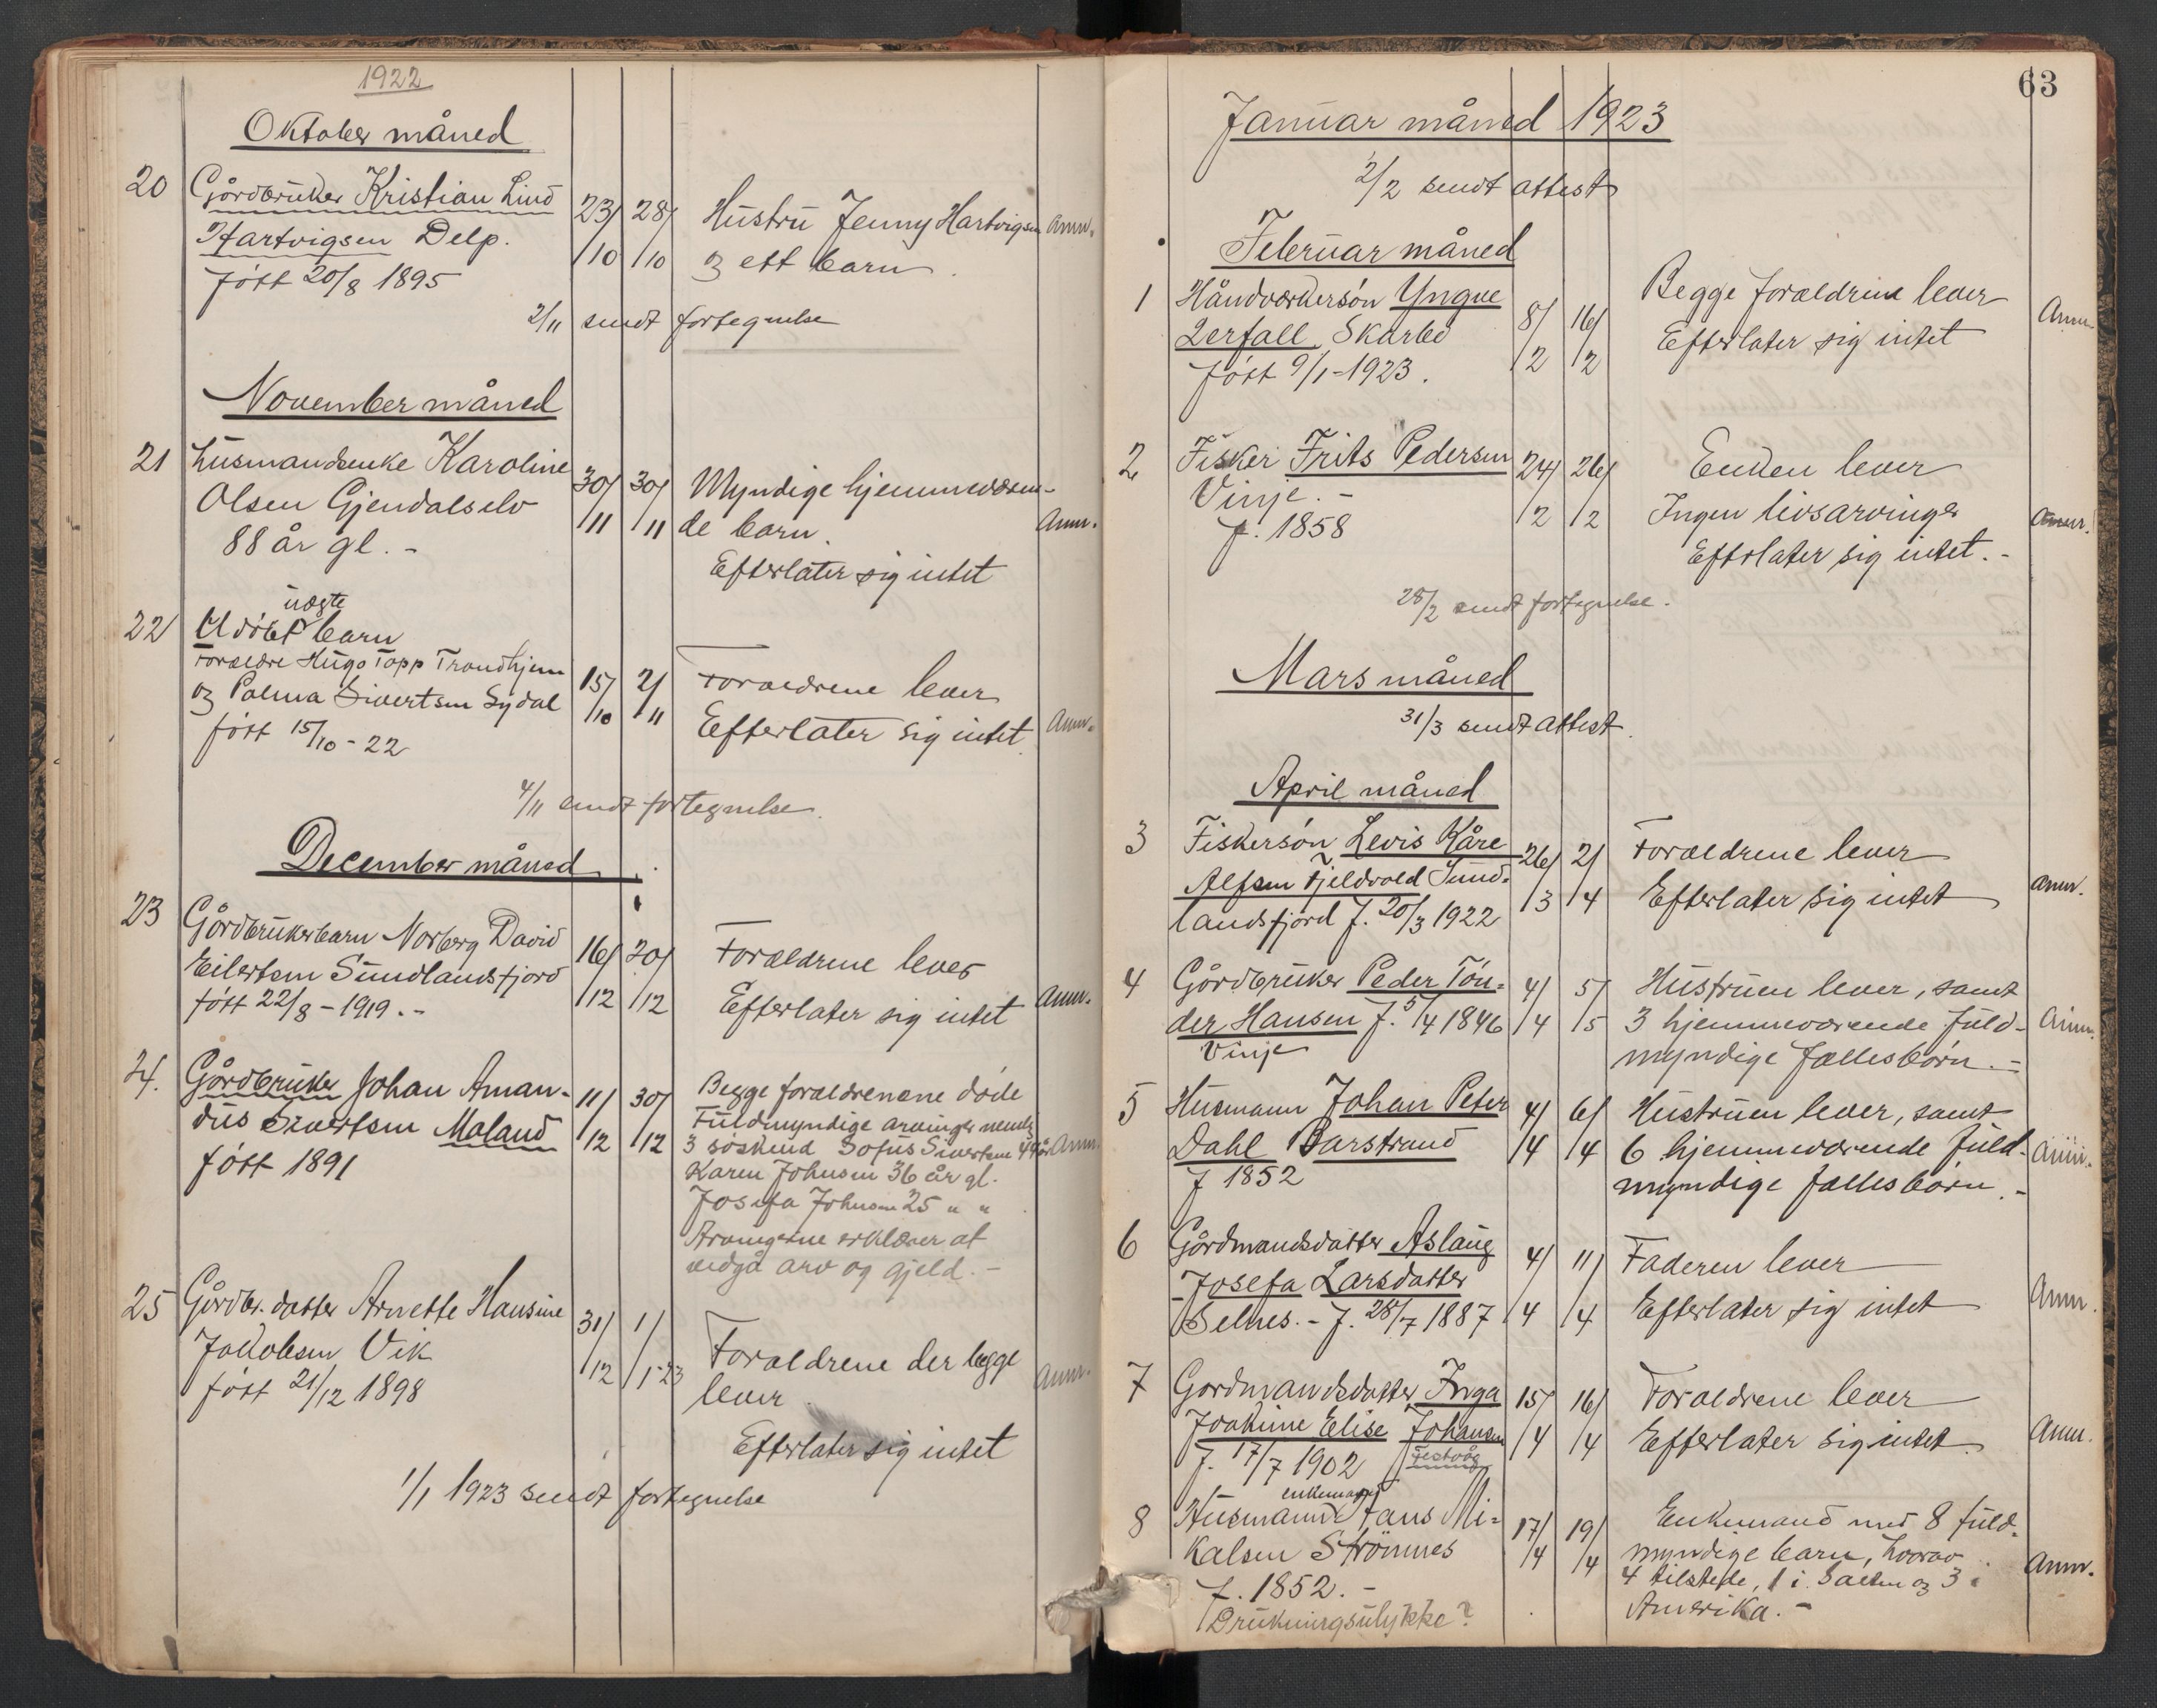 1922
Oktober måned
20 Gårdbruker Kristian Lind 23/10 28/10 Hustru Jenny Hartvigsen Anm.
Hartvigsen Delp. og ett barn.
født 20/8 1895
2/11 sendt fortegnelse
November måned
21 Husmandsenke Karoline 30/11 30/11 Myndige hjemmeværen-
Olsen Gjendalselv de barn. Anm.
88 år gl. - Efterlater sig intet
uægte
22 Udöbt barn
Foreldre Hugo Topp Trondhjem 15/10 2/11 Foreldrene lever
og Palma Sivertsen Sydal Efterlater sig intet Anm.
født 15/10 - 22
4/11 sendt fortegnelse.
December måned
23 Gårdbrukerbarn Norberg David 16/12 20/12 Forældrene lever
Eilertsen Sundlandsfjord Efterlater sig intet Anm.
født 22/8 - 1919. -
24. Gårdbruker Johan Aman- 11/12 30/12 Begge forældrenene døde
dus Sivertsen Moland Fuldmyndige arvinger nemlig
født 1891 3 søskend Sofus Sivertsen 49 år Anm.
Karen Johnsen 36 år gl.
Josefa Johnsen 25 " "
Arvingerne erklærer at
vedgå arv og gjeld. -
25 Gårdbr. datter Arnette Hansine 31/12 1/1-23 Forældrene der begge
Jakobsen Vik lever. Anm.
født 21/12 1898 Efterlater sig intet
1/1 1923 sendt fortegnelse
63
Januar måned 1923
2/2 sendt attest
Februar måned
1 Håndværkersøn Yngve 8/2 16/2 Begge forældrene lever Anm.
Lerfall, Skarbö Efterlater sig intet
født 9/1-1923.
2 Fisker Frits Pedersen 24/2 26/2 Enken lever
Vinje. - Ingen livsarvinger Anm.
f. 1858 Efterlater sig intet. -
28/2 sendt fortegnelse.
Mars måned
31/3 sendt attest.
April måned
3 Fiskersøn Levis Kåre 26/3 2/4 Forældrene lever
Alfsen Fjeldvold Sund- Efterlater sig intet Anm.
landsfjord f. 20/3 1922
4 Gårdbruker Peder Tøn- 4/4 5/5 Hustruen lever, samt
der Hansen f. 5/4 1846 3 hjemmeværende fuld- Anm.
Vinje myndige fællesbørn. -
5 Husmann Johan Peter 4/4 6/4 Hustruen lever, samt
Dahl Barstrand 6 hjemmeværende fuld- Anm.
f 1852 myndige fællesbørn. -
6 Gårdmandsdatter Aslaug 4/4 11/4 Faderen lever
Josefa Larsdatter Efterlater sig intet Anm.
Selnes. - f. 28/7 1887
7 Gårdmandsdatter Inga 15/4 16/4 Forældrene lever
Joakime Elise Johansen Efterlater sig intet Anm.
f. 17/7 1902 Festvåg
enkemand
8 Husmann Hans Mi- 17/4 19/4 Enkemand med 8 fuld-
kalsen Strömnes myndige barn, hvorav
f. 1852. - 4 tilstede, 1 i Salten og 3 i Anm.
Drukningsulykke? Amerika. -